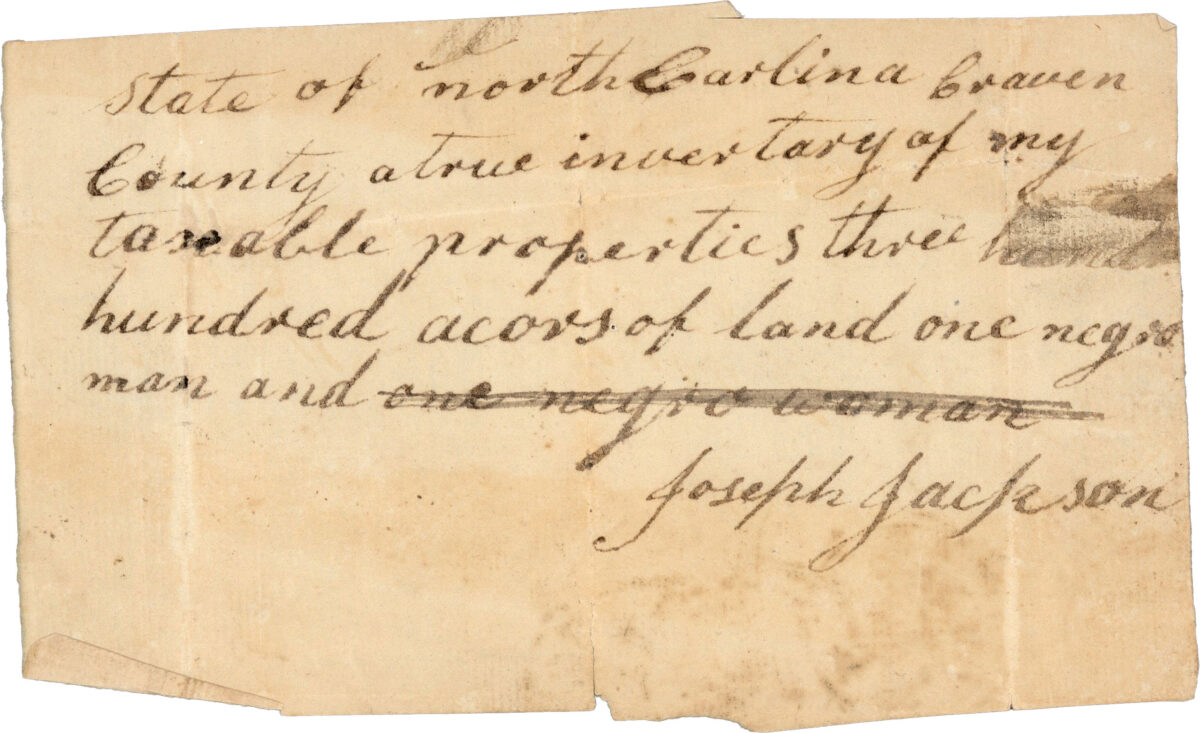 state of north Carlina Craven
County a true invertary of my
taxable properties three
hundred acors of land one negro
man and one negro woman
Joseph Jackson